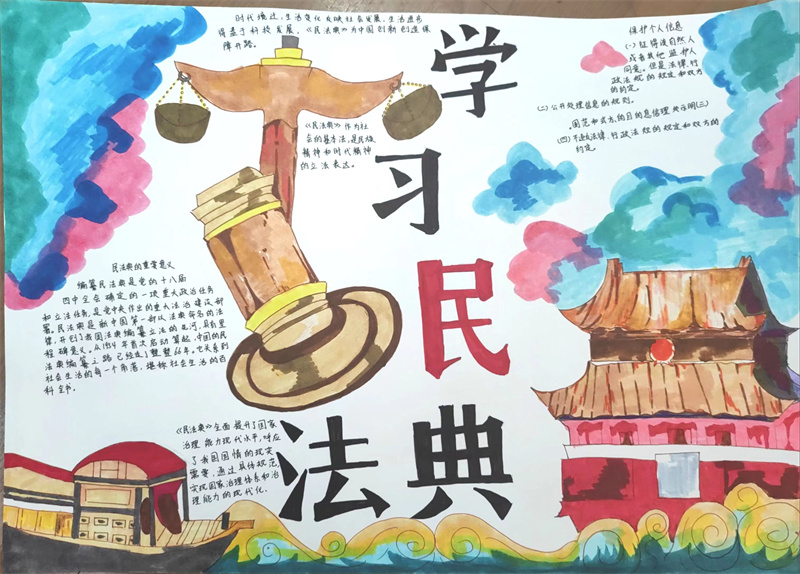 时代境迁，生活变化反映社会发展，生活进步
得益于科技发展，《民法典》为中国创新创造保
障开路。
学
习
民
法典
《民法典》作为社
会的基本法，是民族
精神和时代精神
的立法表达。
保护个人信息
(一)征得该自然人
或者其他监护人
同意。但是法律、行
政法规的规定和双方
的约定。
(二)公开处理信息的规则。
(三)
(四)不违反法律、行政法规的规定和双方的
约定。
民法典的重要意义
编纂民法典是党的十八届
四中全会确定的一项重大政治任务
和立法任务，是党中央作出的重大法治建设部
署。民法典是新中国第一部以法典命名的法
律，开创了我国法典编纂立法的先河，具有里
程碑意义。从1954年首次启动算起，中国的民
法典编纂之路已经走了整整66年。它关系到
社会生活的每一个角落，堪称社会生活的百
科全书。
《民法典》全面提升了国家
治理能力现代水平，呼应
了我国国情的现实
需要，通过具体规范
实现国家治理体系和治
理能力的现代化.